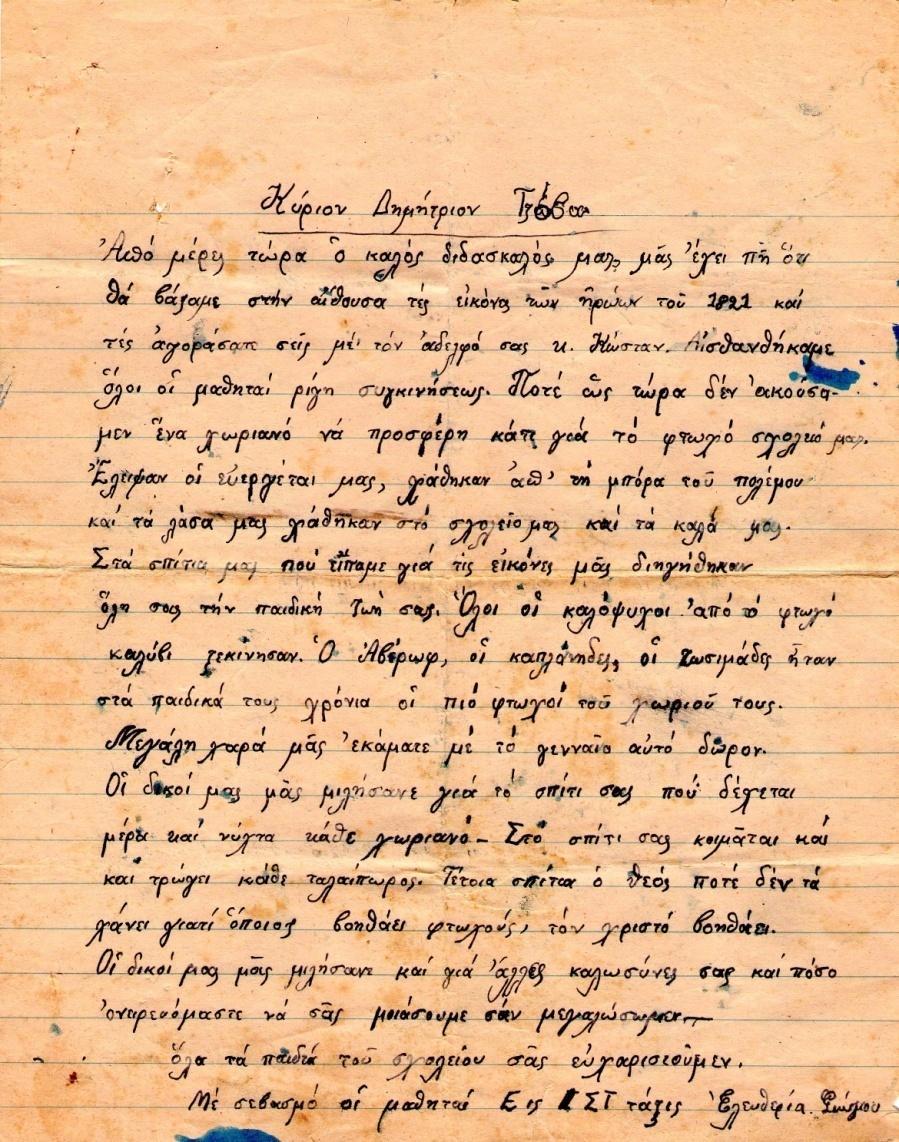 Κύριον Δημήτριον Τζόβα
Ἀπό μέρες τώρα ὁ καλός διδασκαλός μας, μᾶς ἔχει πῆ ὅτι
θά βάζαμε στήν αἴθουσα τές εἰκόνες τῶν ἡρώων τοῦ 1821 καί
τές ἀγοράσατε σεῖς μέ τόν ἀδελφό σας κ. Κώσταν. Αἰσθανθήκαμε
ὅλοι οἱ μαθηταί ρίγη συγκινήσεως. Ποτέ ὥς τώρα δέν ἀκούσα-
μεν ἕνα χωριανό νά προσφέρη κάτι γιά τό φτωχό σχολειό μας.
Ἔλειψαν οἱ εὐεργέται μας, χάθηκαν ἀπ' τή μπόρα τοῦ πολέμου
καί τά δάσα μας χάθηκαν στό σχολεῖο μας καί τά καλά μας.
Στά σπίτια μας πού εἴπαμε γιά τίς εἰκόνες μᾶς διηγήθηκαν
ὅλη σας τήν παιδική ζωή σας. Ὅλοι οἱ καλόψυχοι ἀπό τό φτωχό
καλύβι ξεκίνησαν. Ὁ Ἀβέρωφ, οἱ καπλάνηδες, οἱ ζωσιμάδες ἦταν
στά παιδικά τους χρόνια οἱ πιό φτωχοί τοῦ χωριοῦ τους.
Μεγάλη χαρά μᾶς ἐκάματε μέ τό γενναῖο αὐτό δῶρον.
Οἱ δικοί μας μᾶς μιλήσανε γιά τό σπίτι σας πού δέχεται
μέρα καί νύχτα κάθε χωριανό – Στό σπίτι σας κοιμᾶται καί
καί τρώγει κάθε ταλαίπωρος. Τέτοια σπίτια ὁ θεός ποτέ δέν τά
χάνει γιατί ὅποιος βοηθάει φτωχούς, τόν χριστό βοηθάει.
Οἱ δικοί μας μᾶς μιλήσανε καί γιά ἄλλες καλωσύνες σας καί πόσο
ὀνειρευόμαστε νά σᾶς μοιάσουμε σάν μεγαλώσωμεν –
ὅλα τά παιδιά τοῦ σχολείου σᾶς εὐχαριστοῦμεν.
Μέ σεβασμό οἱ μαθηταί Ε ις ΣΤ τάξις Ἐλευθερία